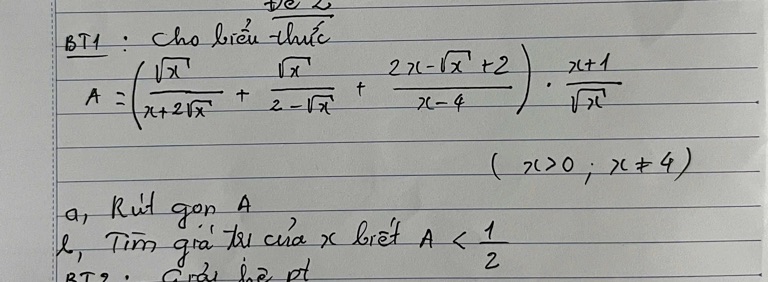 Đề 2
BT1 : Cho biểu thức
A = ( √x / (x+2√x) + √x / (2-√x) + (2x-√x+2) / (x-4) ) . (x+1) / √x
( x>0 ; x ≠ 4 )
a, Rút gọn A
b, Tìm giá trị của x biết A < 1/2
BT2 : Giải hệ pt